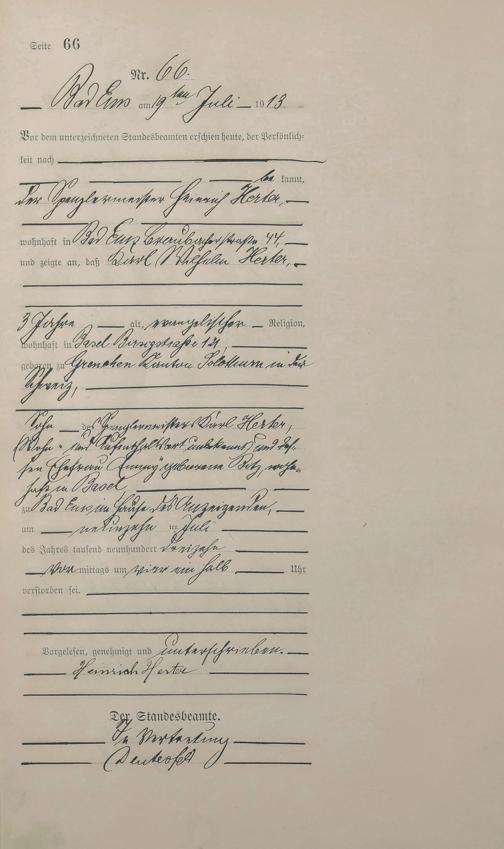 Seite 66
Nr. 66.
Bad Ems am 19ten Juli 1913.
Vor dem unterzeichneten Standesbeamten erschien heute, der Persönlich-
keit nach
be kannt,
der Spenglermeister Heinrich Herter,
wohnhaft in Bad Ems Braubacherstraße 44,
und zeigte an, daß Karl Wilhelm Herter,
3 Jahre alt, evangelischer Religion,
wohnhaft in Basel 121,
geboren zu Grenchen Kanton Solothurn in der
Schweiz,
Sohn des Spenglermeisters Karl Herter,
(Wohn- und Aufenthaltsort unbekannt) und des-
sen Ehefrau Emmy geborene Betz, wohn-
haft in Basel
zu Bad Ems im Hause des Anzeigenden,
am neunzehn ten Juli
des Jahres tausend neunhundert dreizehn
Vor mittags um vier ein halb Uhr
verstorben sei.
Vorgelesen, genehmigt und unterschrieben.
Heinrich Herter
Der Standesbeamte.
In Vertretung